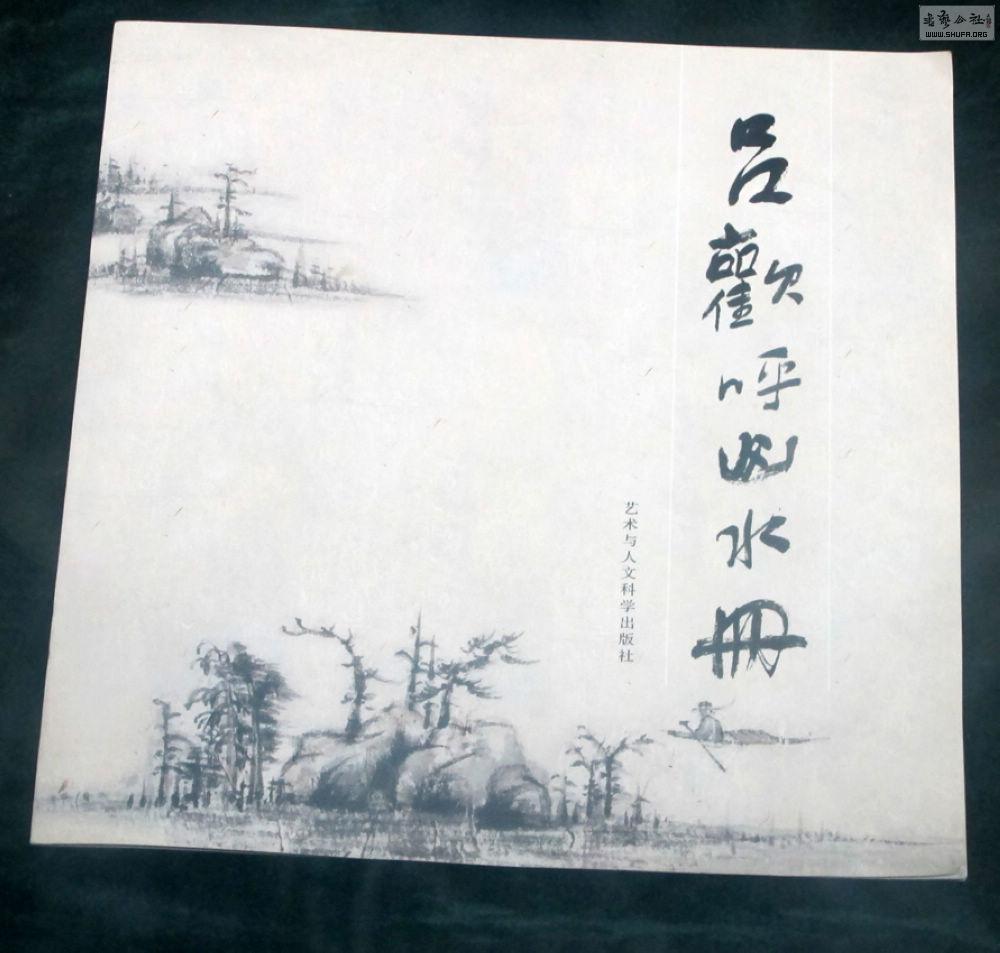 吕歡呼山水冊
艺术与人文科学出版社
书艺公社
WWW.SHUFA.ORG